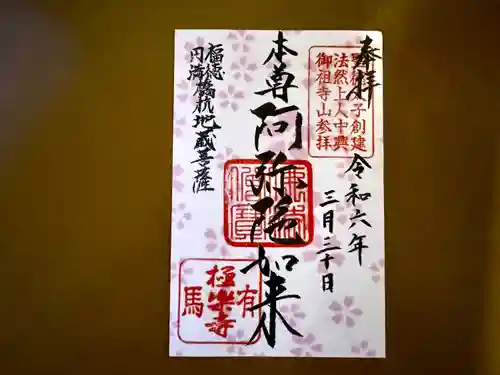 奉拝
聖徳太子創建
法然上人中興
御祖寺山参拝
令和六年
三月三十日
本尊阿弥陀如来
福徳
円満
地蔵菩薩
有馬
極楽寺